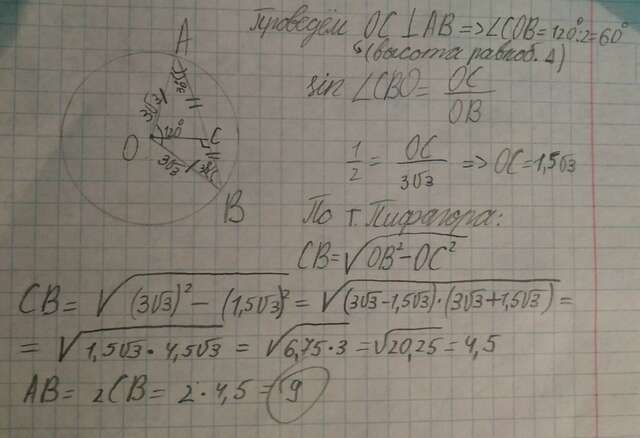 Проведём OC⊥AB => ∠COB = 120°:2 = 60°
(высота равноб. Δ)
sin ∠CBO = OC/OB
1/2 = OC/3√3 => OC = 1,5√3
По т. Пифагора:
CB = √(OB² - OC²)
CB = √((3√3)² - (1,5√3)²) = √((3√3 - 1,5√3)·(3√3 + 1,5√3)) =
= √(1,5√3 · 4,5√3) = √(6,75·3) = √20,25 = 4,5
AB = 2CB = 2·4,5 = 9
A
30°
3√3
O
120°
C
3√3
30°
B